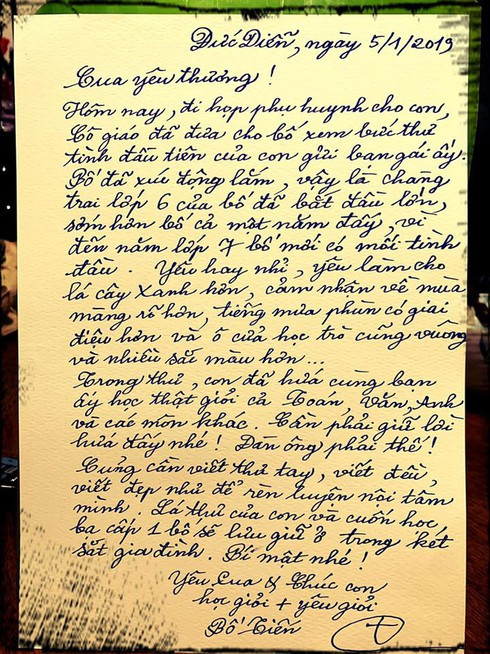 Đức Diễn, ngày 5/1/2019
Cua yêu thương !
Hôm nay, đi họp phụ huynh cho con,
Cô giáo đã đưa cho bố xem bức thư
tình đầu tiên của con gửi bạn gái ấy.
Bố đã xúc động lắm, vậy là chàng
trai lớp 6 của bố đã bắt đầu lớn,
sớm hơn bố cả một năm đấy, vì
đến năm lớp 7 bố mới có mối tình
đầu. Yêu hay nhỉ, yêu làm cho
lá cây xanh hơn, cảm nhận về mùa
màng rõ hơn, tiếng mưa phùn có giai
điệu hơn và ô cửa học trò cũng vuông
và nhiều sắc màu hơn...
Trong thư, con đã hứa cùng bạn
ấy học thật giỏi cả Toán, Văn, Anh
và các môn khác. Cần phải giữ lời
hứa đấy nhé ! Đàn ông phải thế !
Cũng cần viết thư tay, viết đều,
viết đẹp như để rèn luyện nội tâm
mình. Lá thư của con và cuốn học
bạ cấp 1 bố sẽ lưu giữ ở trong két
sắt gia đình. Bí mật nhé !
Yêu Cua & Chúc con
học giỏi + yêu giỏi
Bố Tiên